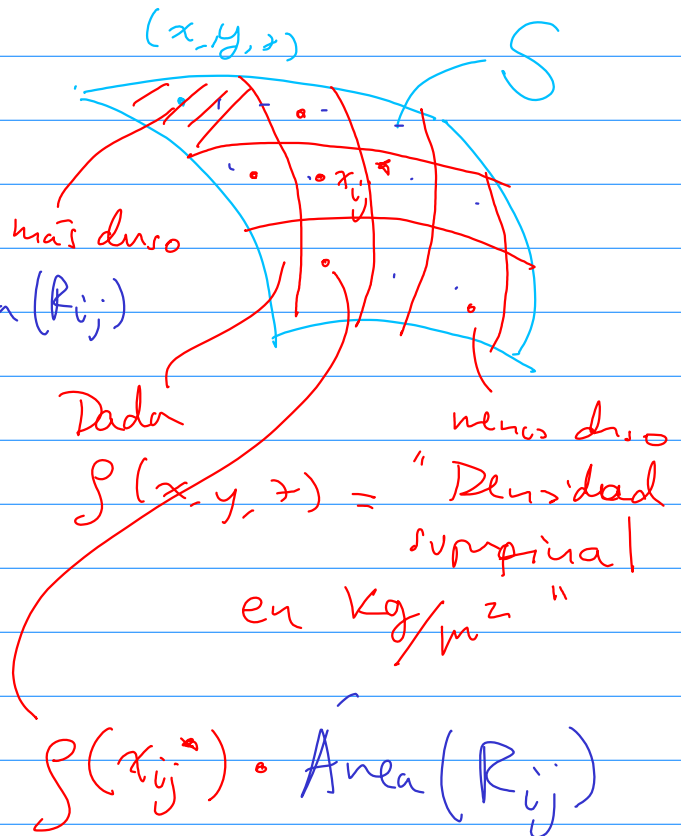 (x, y, z)
S
x*ij
más denso
a(Rij)
Dada
menos denso
ρ(x, y, z) = "Densidad
superficial
en Kg/m² "
ρ(xij*) • Área(Rij)